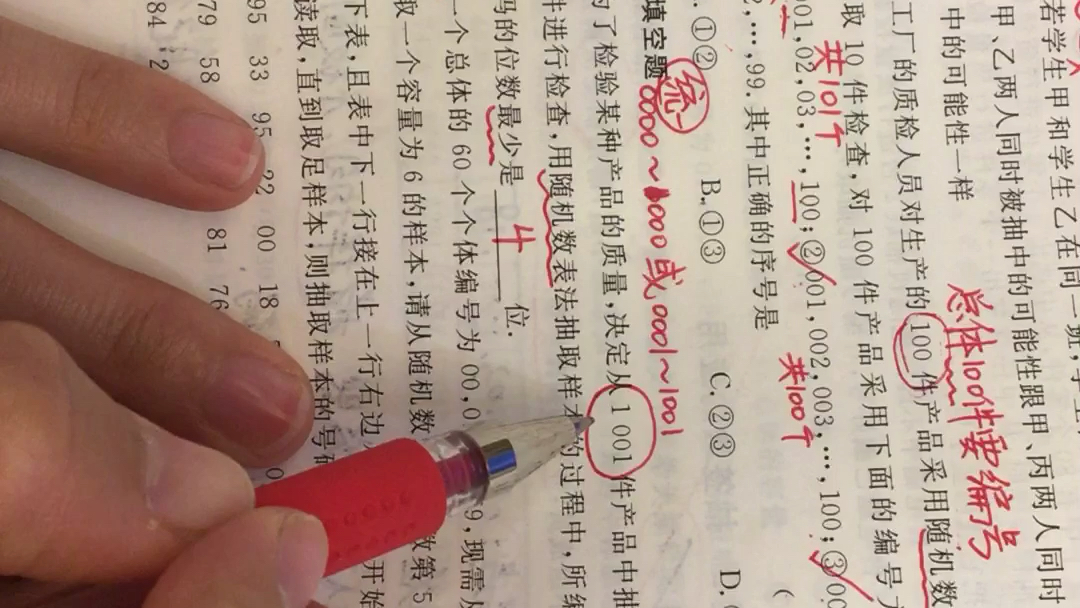 若学生甲和学生乙在同一班,学生
甲、乙两人同时被抽中的可能性跟甲、丙两人同时
中的可能性一样
总体100件要编号
工厂的质检人员对生产的100件产品采用随机数
取10件检查,对100件产品采用下面的编号
共101个
01,02,03,…,100;②001,002,003,…,100;③00
共100个
2,…,99.其中正确的序号是 (
.①② B.①③ C.②③ D.
统一
0000~1000或0001~1001
填空题
为了检验某种产品的质量,决定从1 001件产品中抽
件进行检查,用随机数表法抽取样本的过程中,所编
码的位数最少是 4 位.
一个总体的60个个体编号为00,0 9,现需从
取一个容量为6的样本,请从随机数 数第5
下表,且表中下一行接在上一行右边 开始
读取,直到取足样本,则抽取样本的号码
95 33 95 22 00 18
79 58 81 76
84 2